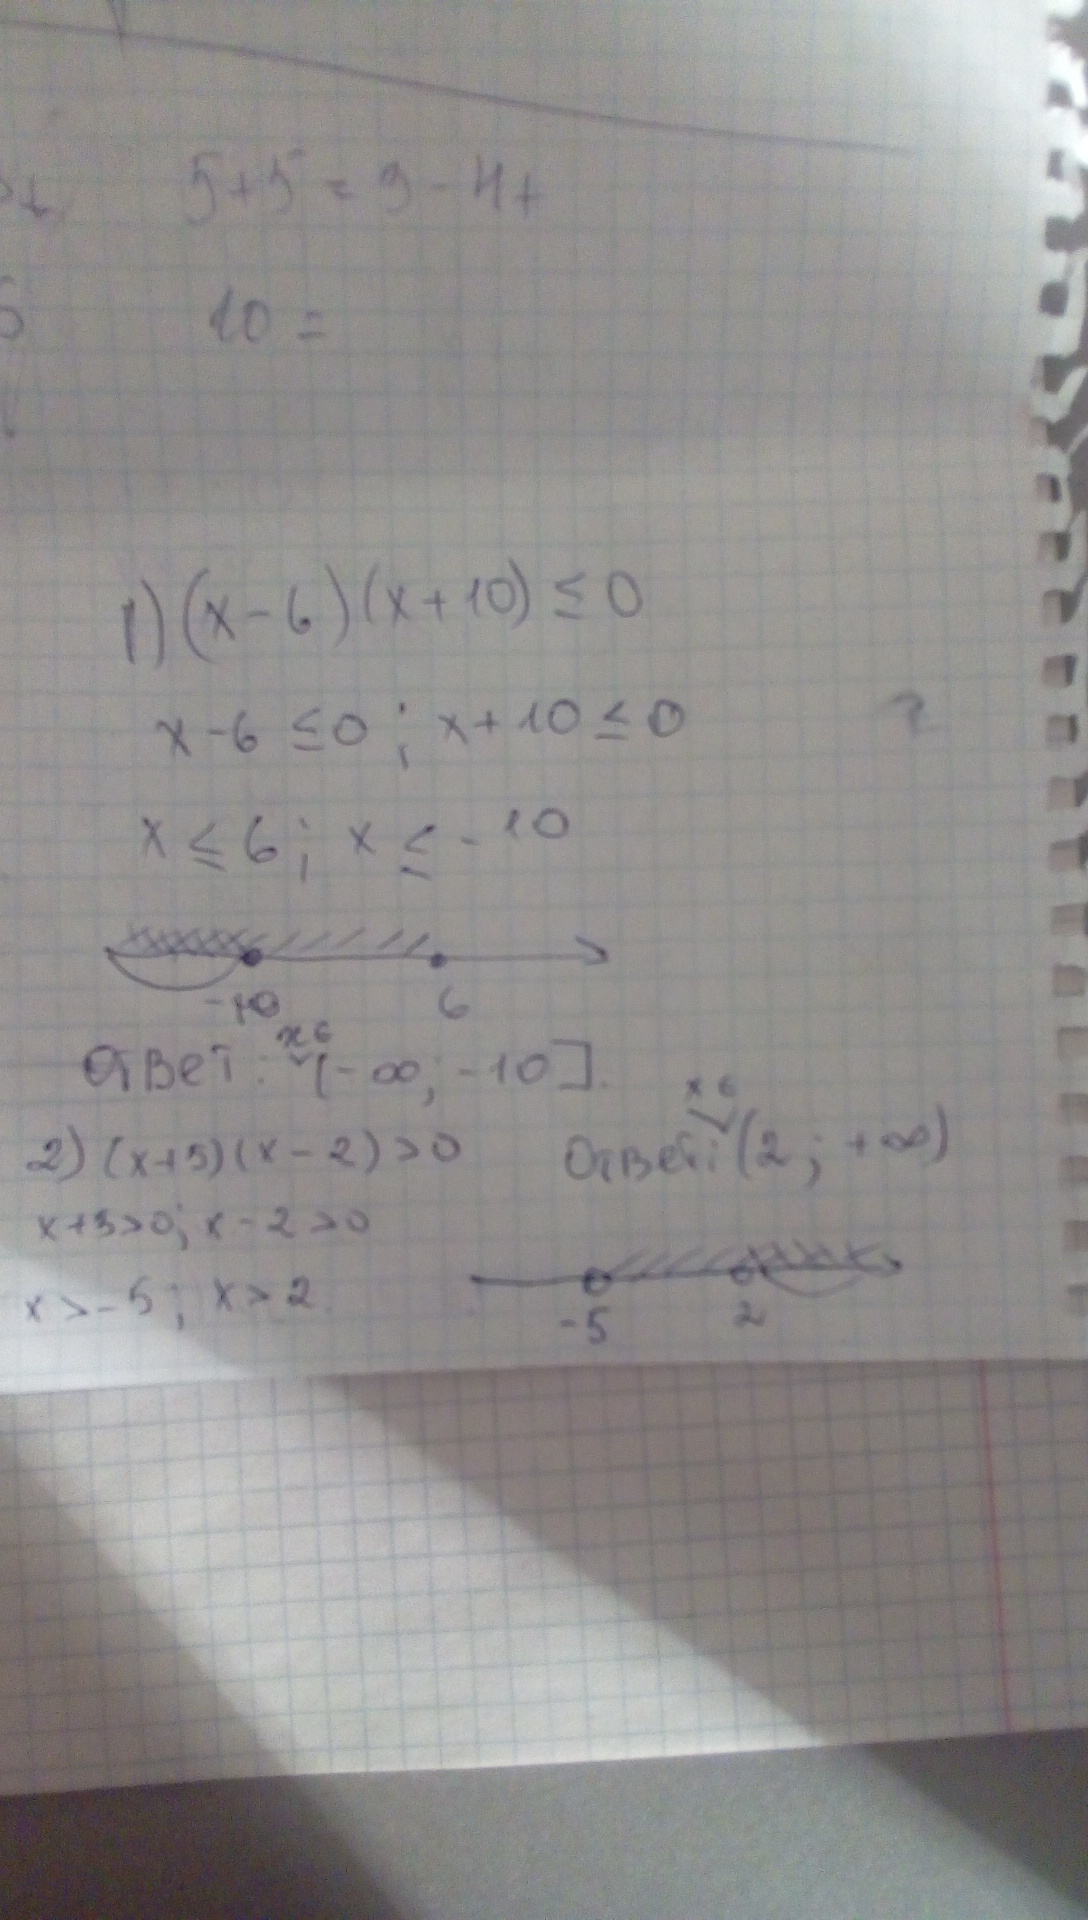 5+5=9-4t
10=
1) (x-6)(x+10)≤0
x-6≤0; x+10≤0 ?
x≤6; x≤-10
-10 6
Ответ: x∈(-∞; -10].
2) (x+5)(x-2)>0 Ответ: x∈(2; +∞)
x+5>0; x-2>0
x>-5; x>2
-5 2